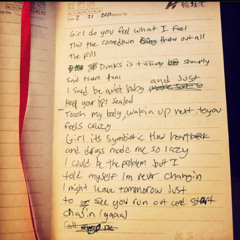 2 21
Girl do you feel what I feel
This the comedown throw out all
The pills
Dunks is taking
Sad
I said be quiet baby and Just
Keep your lips sealed
Touch my body wakin up next to you
feels crazy
Girl its Symbiotic How
and drugs made me so lazy
I could be the problem but I
told myself Im never changin
I might leave tomorrow Just
to see you run out and start
chasin